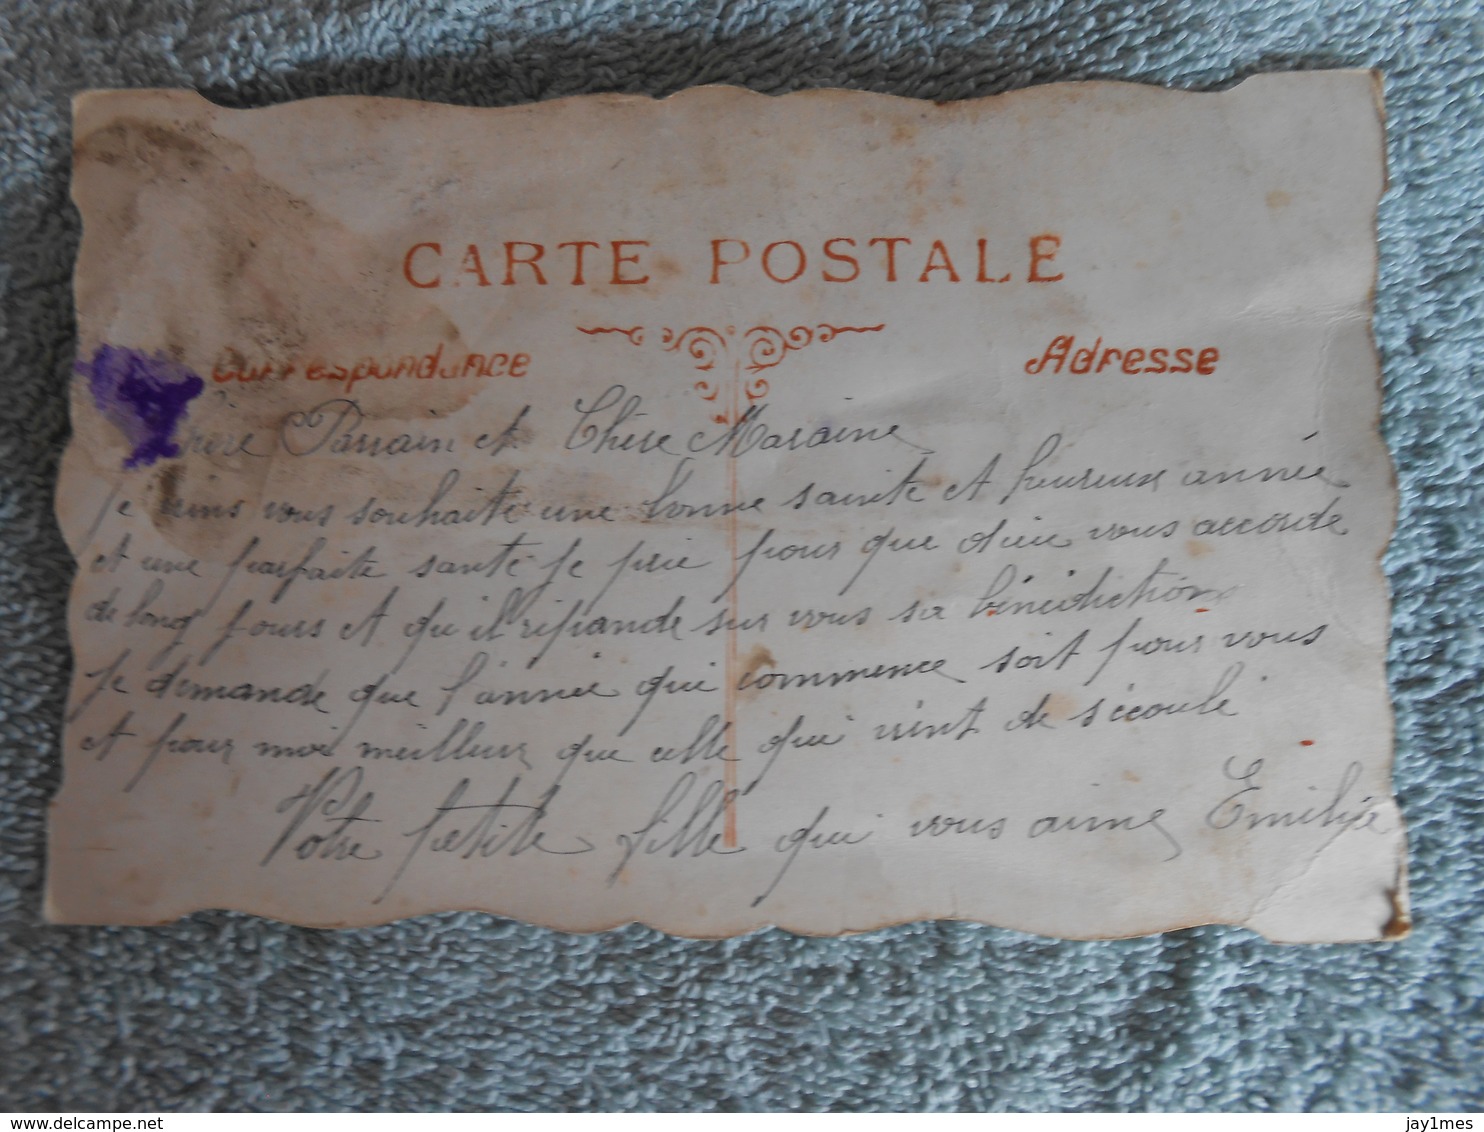 CARTE POSTALE
Correspondance
Adresse
Parrain et Chère Maraine
Je viens vous souhaite une bonne sainte et heureux année
et une parfaite santé je prie pour que dieu vous accorde
de long jours et qu'il répande sur vous sa bénédiction
Je demande que l'année qui commence soit pour vous
et pour moi meilleur que celle qui vient de s'écoulé
Votre petite fille qui vous aime Emilie
delcampe.net
jay1mes